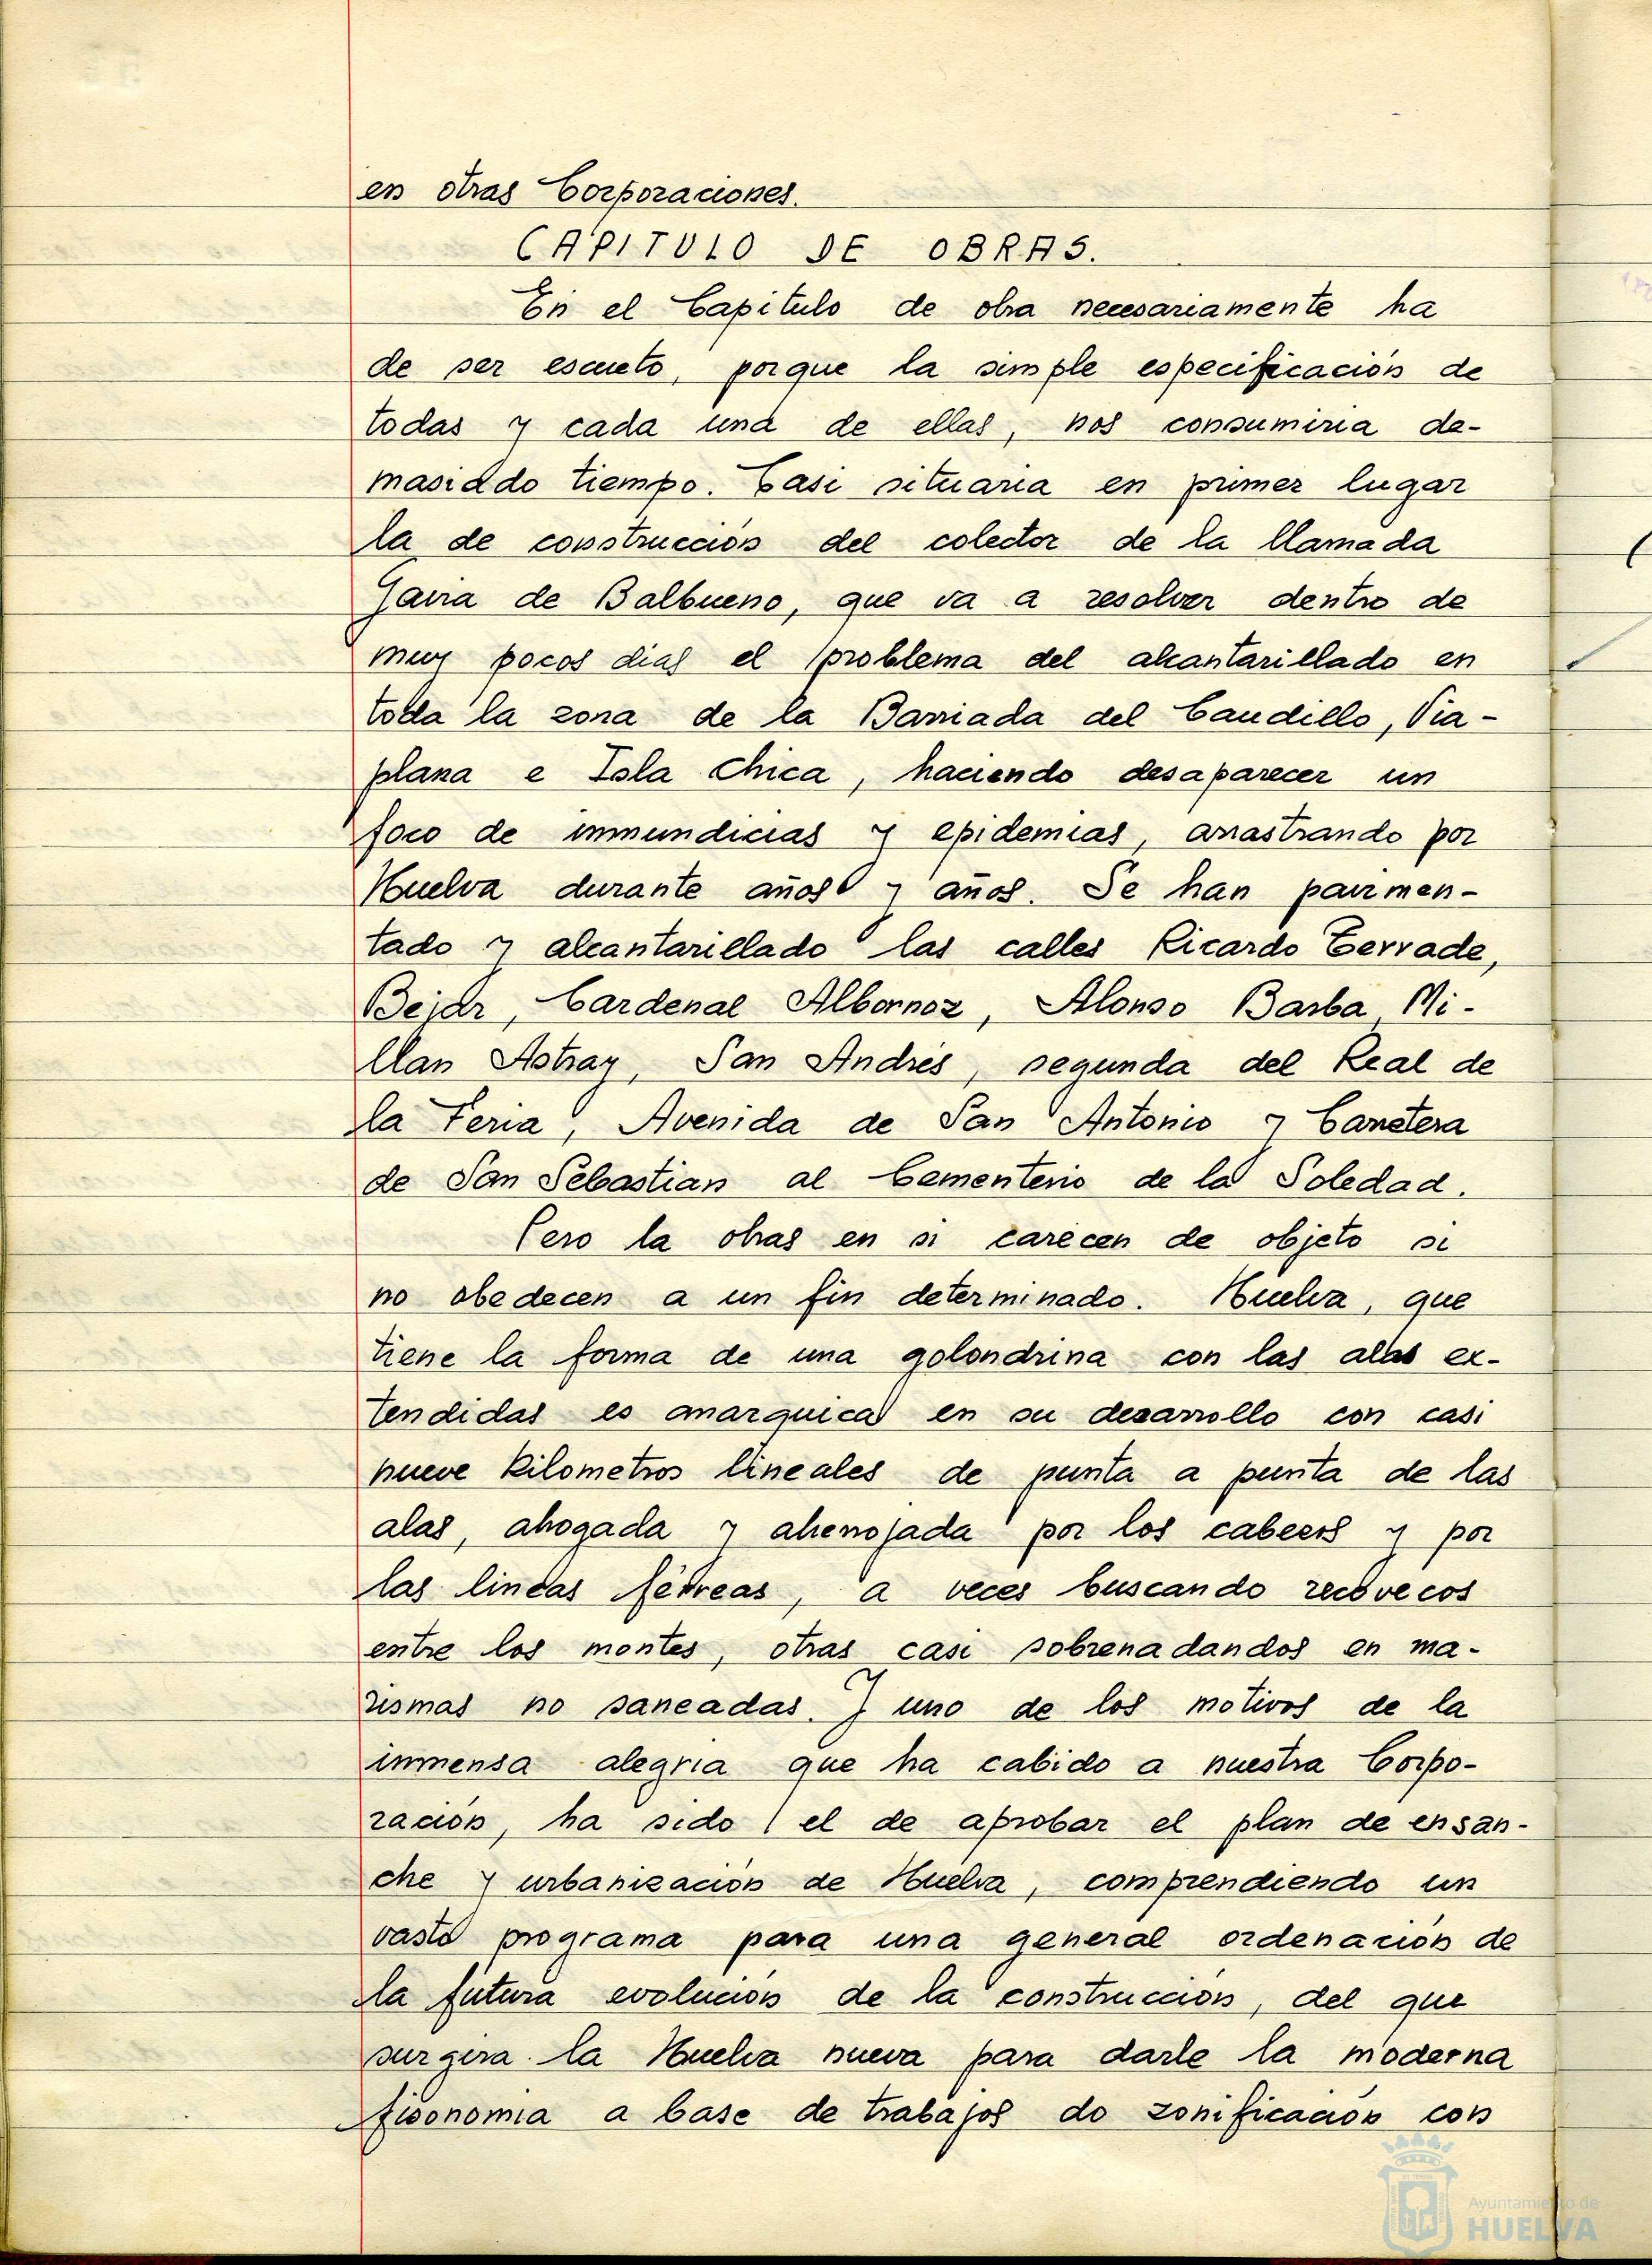 en otras Corporaciones.
CAPITULO DE OBRAS.
En el Capitulo de obra necesariamente ha
de ser escueto, porque la simple especificación de
todas y cada una de ellas, nos consumiria de-
masiado tiempo. Casi situaria en primer lugar
la de construcción del colector de la llamada
Gavia de Balbueno, que va a resolver dentro de
muy pocos dias el problema del alcantarillado en
toda la zona de la Barriada del Caudillo, Via-
plana e Isla Chica, haciendo desaparecer un
foco de inmundicias y epidemias, arrastrando por
Huelva durante años y años. Se han pavimen-
tado y alcantarillado las calles Ricardo Terrade,
Bejar, Cardenal Albornoz, Alonso Barba, Mi-
llan Astray, San Andrés, segunda del Real de
la Feria, Avenida de San Antonio y Carretera
de San Sebastian al Cementerio de la Soledad.
Pero la obras en si carecen de objeto si
no obedecen a un fin determinado. Huelva, que
tiene la forma de una golondrina con las alas ex-
tendidas es anarquica en su desarrollo con casi
nueve Kilometros lineales de punta a punta de las
alas, ahogada y aherrojada por los cabezos y por
las lineas férreas, a veces buscando recovecos
entre los montes, otras casi sobrenadandos en ma-
rismas no saneadas. Y uno de los motivos de la
inmensa alegria que ha cabido a nuestra Corpo-
ración, ha sido el de aprobar el plan de ensan-
che y urbanización de Huelva, comprendiendo un
vasto programa para una general ordenación de
la futura evolución de la construcción, del que
surgira la Huelva nueva para darle la moderna
fisonomia a base de trabajos do zonificación con
Ayuntamiento de
HUELVA